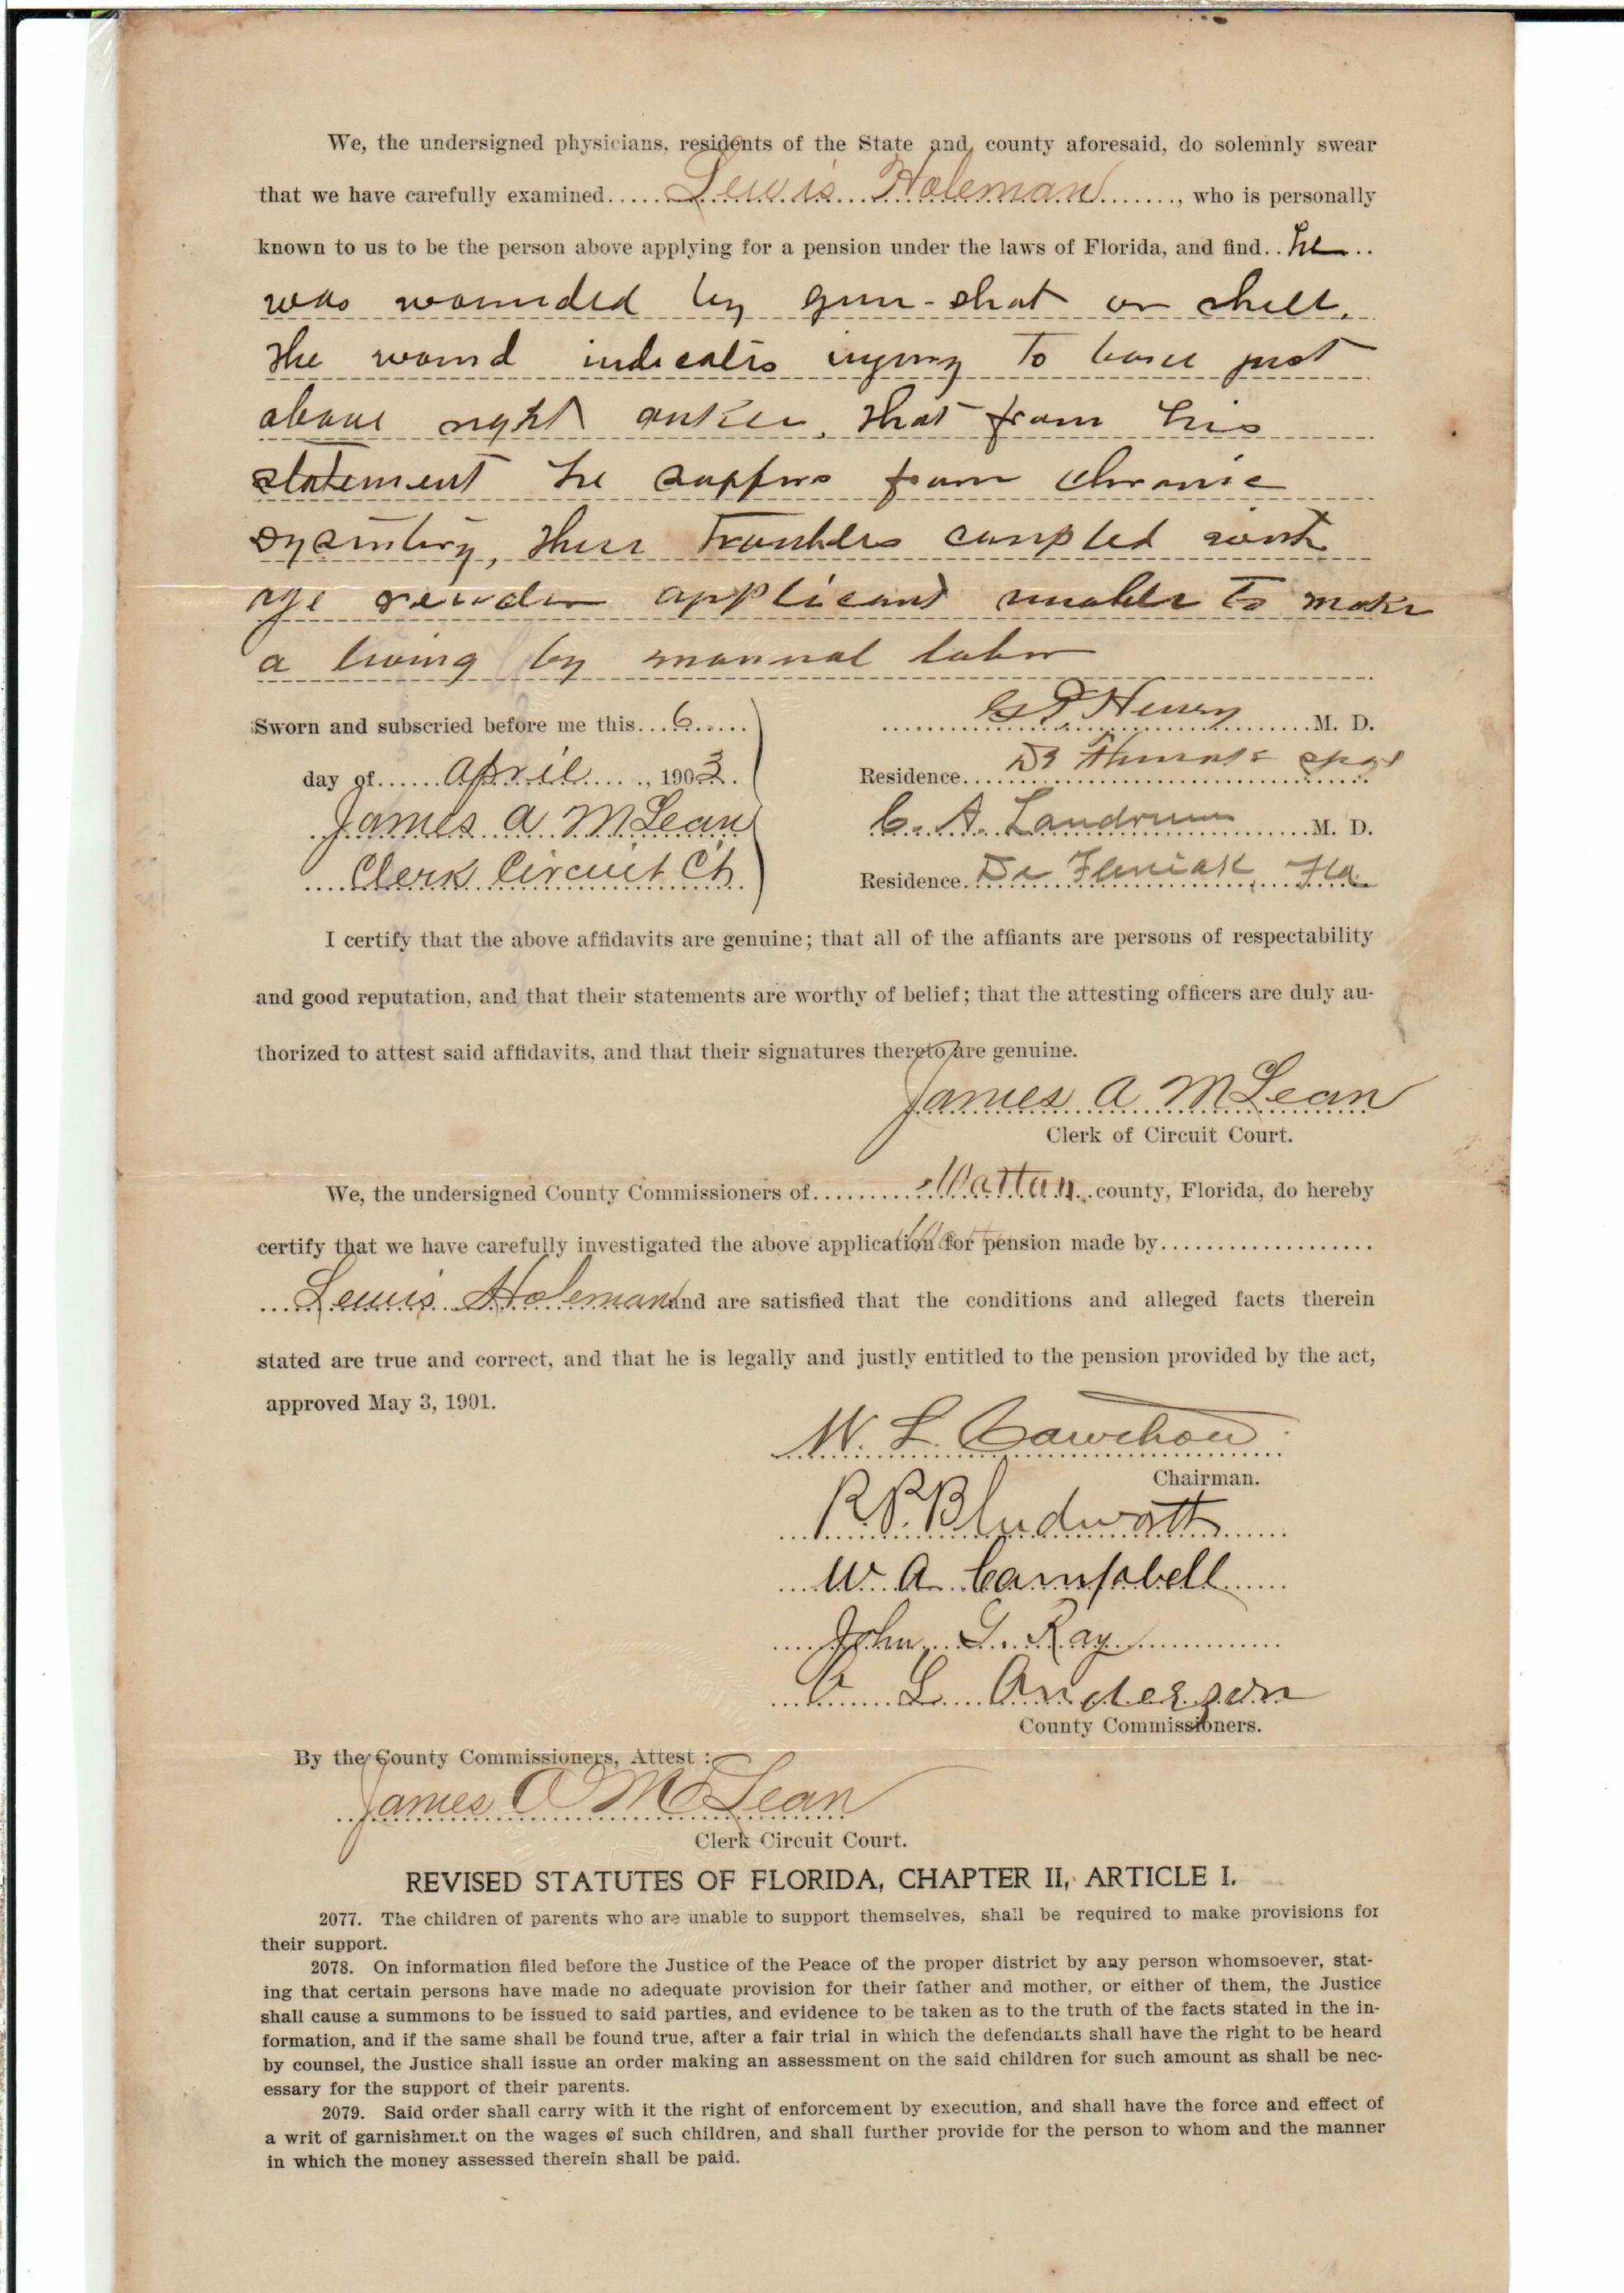 We, the undersigned physicians, residents of the State and county aforesaid, do solemnly swear
that we have carefully examined.....Lewis Holeman......., who is personally
known to us to be the person above applying for a pension under the laws of Florida, and find..he..
was wounded by gun-shot or shell.
The wound indicates injury to bone just
above right ankle, that from his
statement he suffers from chronic
dysentery, these troubles coupled with
age render applicant unable to make
a living by manual labor
Sworn and subscried before me this...6.....
day of......April....., 1903.
James A McLean
Clerk Circuit Ct.
Henry M. D.
Residence....De Funiak Spgs
C. A. Landrum M. D.
Residence. De Funiak, Fla.
I certify that the above affidavits are genuine; that all of the affiants are persons of respectability
and good reputation, and that their statements are worthy of belief; that the attesting officers are duly au-
thorized to attest said affidavits, and that their signatures thereto are genuine.
James A McLean
Clerk of Circuit Court.
We, the undersigned County Commissioners of.........Walton..county, Florida, do hereby
certify that we have carefully investigated the above application for pension made by...................
...Lewis Holeman and are satisfied that the conditions and alleged facts therein
stated are true and correct, and that he is legally and justly entitled to the pension provided by the act,
approved May 3, 1901.
W. L. Cawthon
Chairman.
R. P. Bludworth
W. A. Campbell
John G. Ray
L Anderson
County Commissioners.
By the County Commissioners, Attest :
James A McLean
Clerk Circuit Court.
REVISED STATUTES OF FLORIDA, CHAPTER II, ARTICLE I.
2077. The children of parents who are unable to support themselves, shall be required to make provisions for
their support.
2078. On information filed before the Justice of the Peace of the proper district by any person whomsoever, stat-
ing that certain persons have made no adequate provision for their father and mother, or either of them, the Justice
shall cause a summons to be issued to said parties, and evidence to be taken as to the truth of the facts stated in the in-
formation, and if the same shall be found true, after a fair trial in which the defendants shall have the right to be heard
by counsel, the Justice shall issue an order making an assessment on the said children for such amount as shall be nec-
essary for the support of their parents.
2079. Said order shall carry with it the right of enforcement by execution, and shall have the force and effect of
a writ of garnishment on the wages of such children, and shall further provide for the person to whom and the manner
in which the money assessed therein shall be paid.